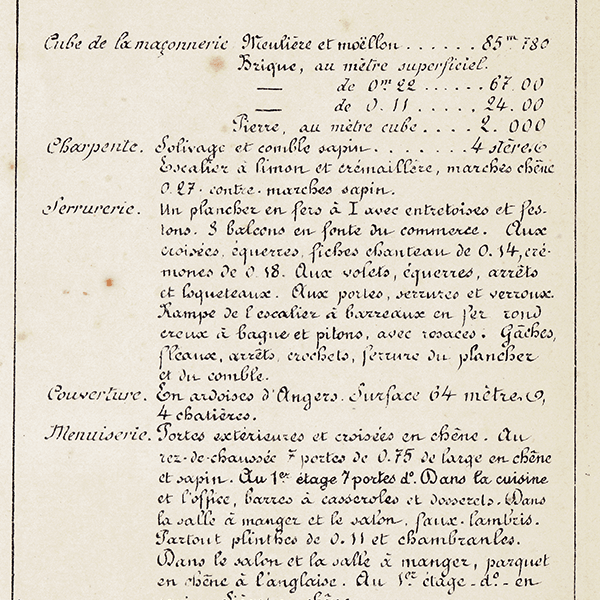 Cube de la maçonnerie Meulière et moëllon ...... 85m 780
Brique, au mètre superficiel.
— de 0m 22 ...... 67.00
— de 0.11 ..... 24.00
Pierre, au mètre cube .... 2.000
Charpente. Solivage et comble sapin ....... 4 stères
Escalier à limon et crémaillère, marches chêne
0.27. contre-marches sapin.
Serrurerie. Un plancher en fers à I avec entretoises et fes-
tons. 3 balcons en fonte du commerce. Aux
croisées, équerres, fiches chanteau de 0.14, cré-
mones de 0.18. Aux volets, équerres, arrêts
et loqueteaux. Aux portes, serrures et verroux.
Rampe de l'escalier à barreaux en fer rond
creux à bague et pitons, avec rosaces. Gâches,
fleaux, arrêts, crochets, ferrure du plancher
et du comble.
Couverture. En ardoises d'Angers. Surface 64 mètres,
4 chatières.
Menuiserie. Portes extérieures et croisées en chêne. Au
rez-de-chaussée 7 portes de 0.75 de large en chêne
et sapin. Au 1er étage 7 portes do. Dans la cuisine
et l'office, barres à casseroles et dosserets. Dans
la salle à manger et le salon, faux-lambris.
Partout plinthes de 0.11 et chambranles.
Dans le salon et la salle à manger, parquet
en chêne à l'anglaise. Au 1er étage - do - en